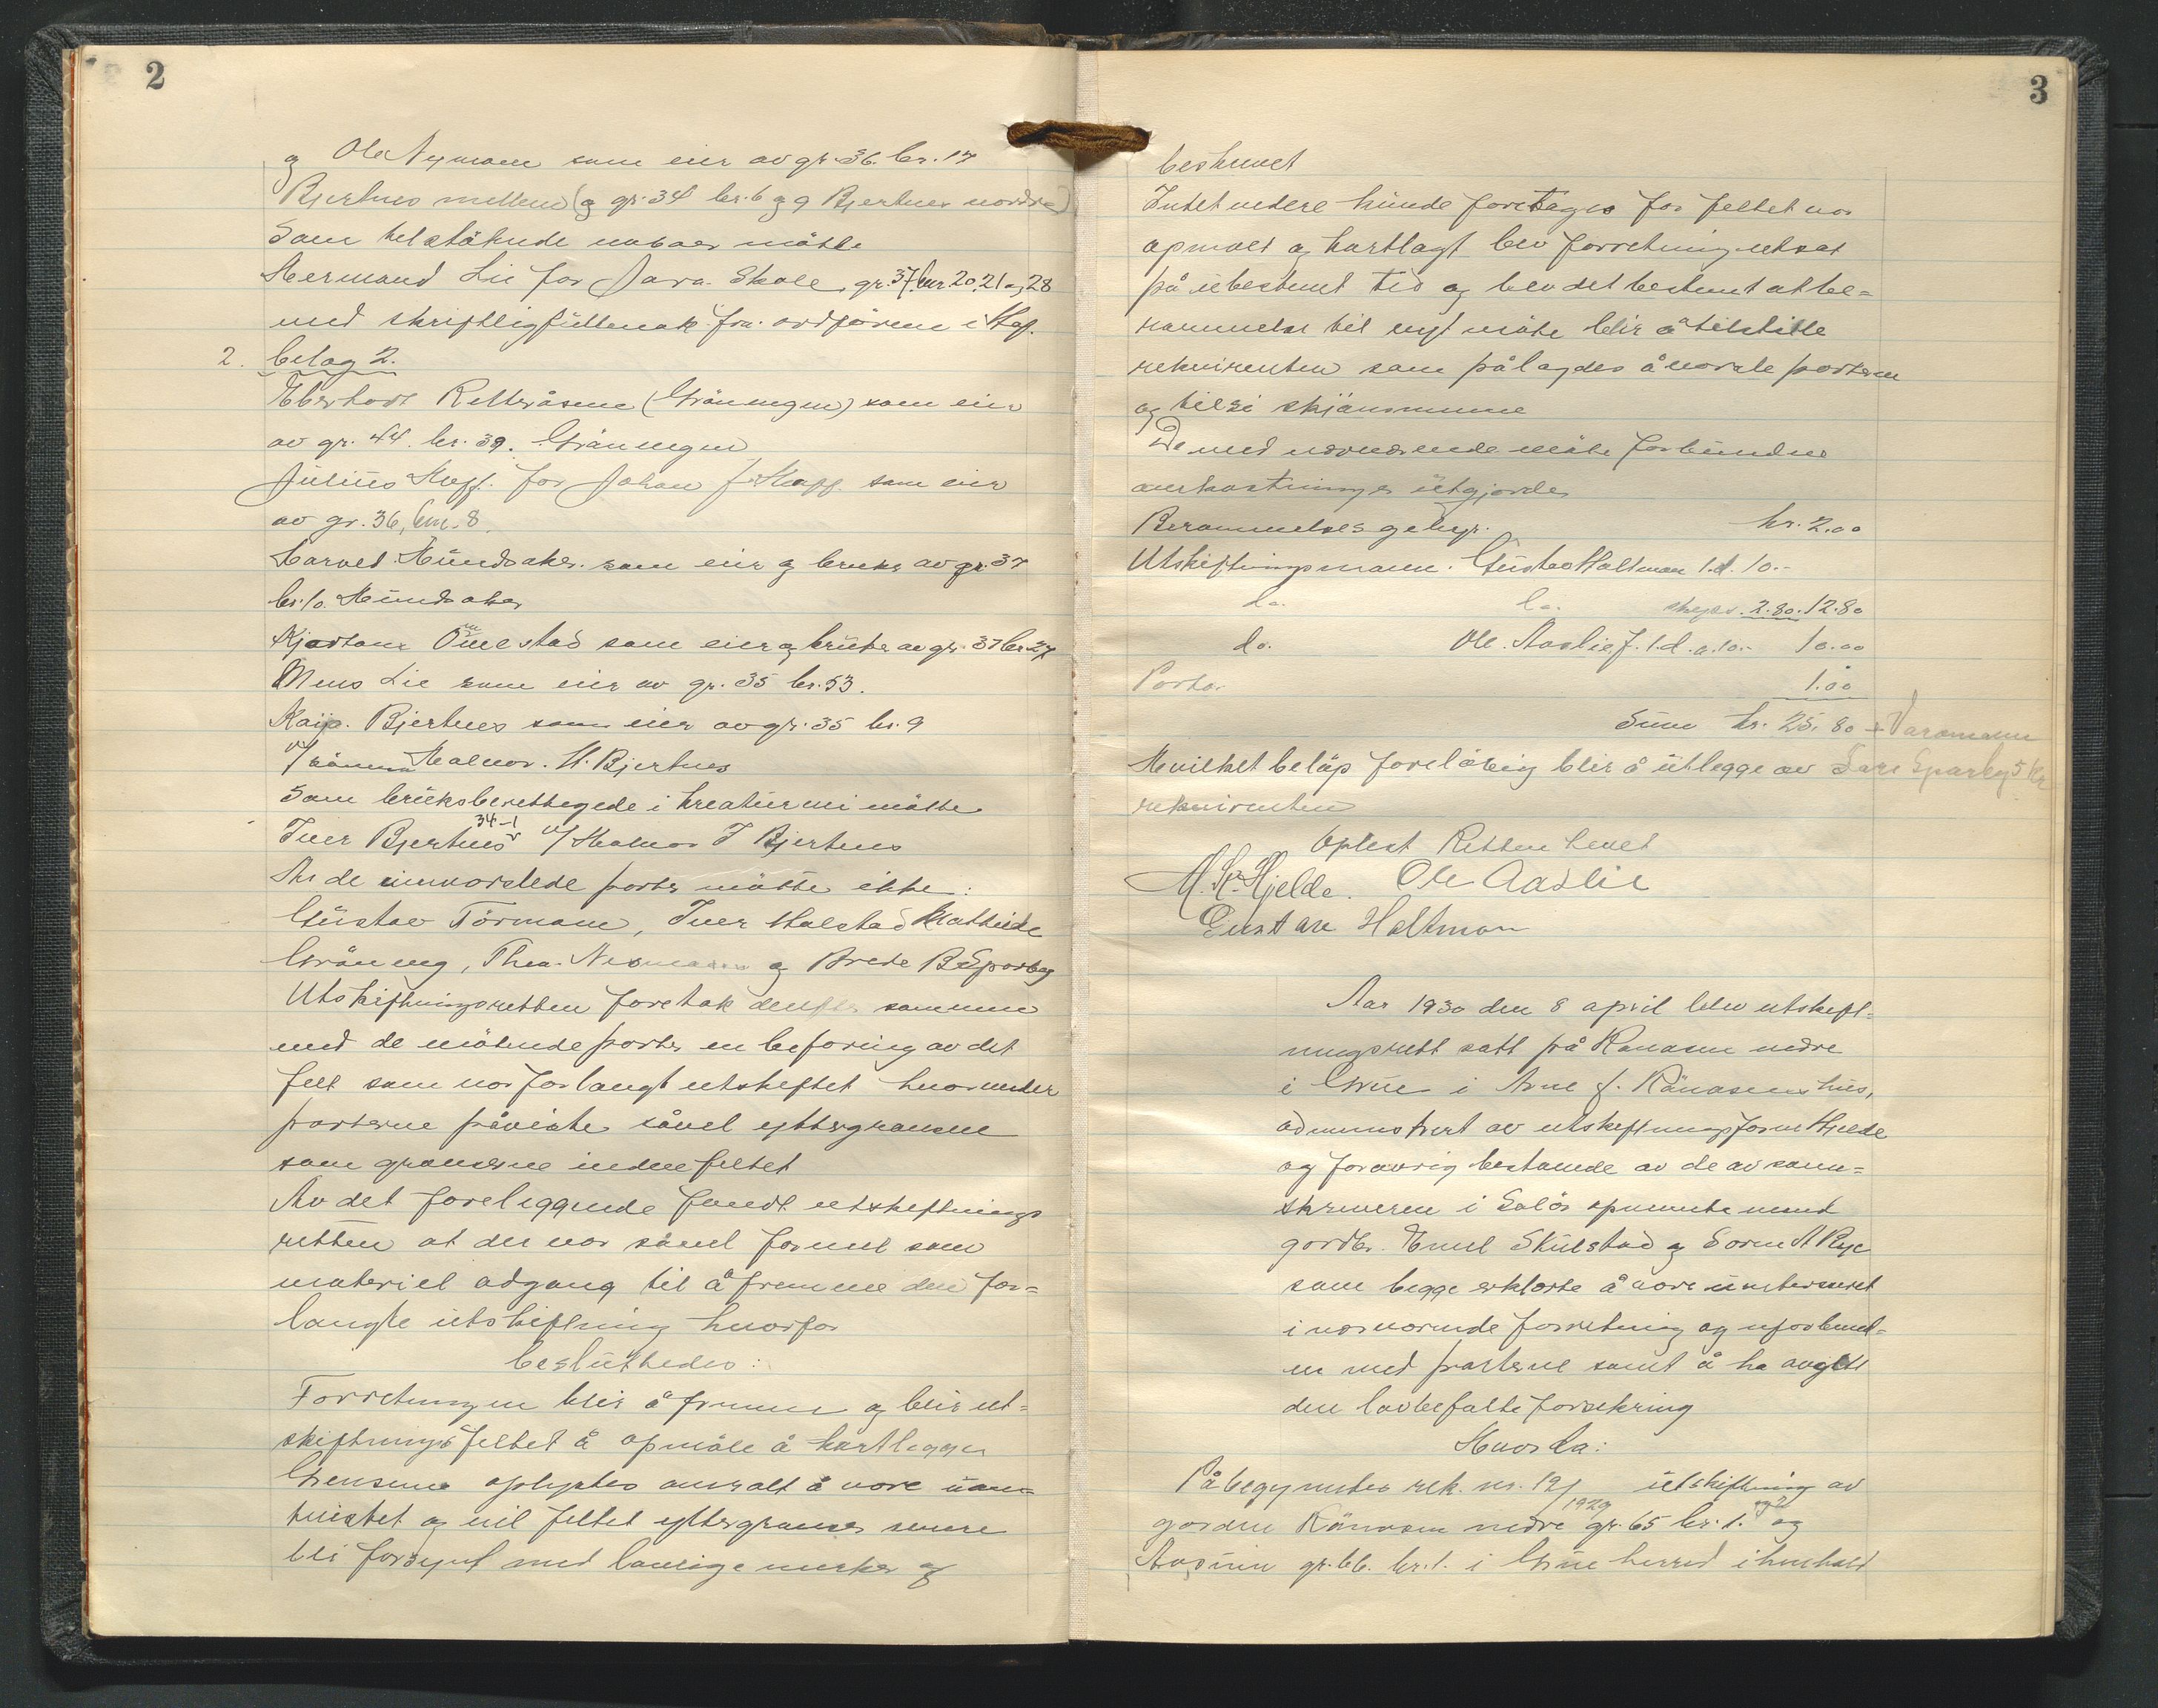 2
og Ole Nymoen som eier av gr. 36. br. 17
Bjertnes mellem (og gr. 34 br. 6 og 9 Bjertnes nordre)
Som tilstötende naboer mötte
Hermand Lie for Jara Skole, gr. 37 bnr 20, 21 og 28
med skriftlig fullmakt fra ordföreren i Hof.
2. bilag 2.
Eberhart Retteråsen (Gröningen) som eier
av gr. 44. br. 39. Gröningen
Julius Hoff. for Johan J. Hoff som eier
av gr. 36, bnr. 8.
Harald Mundsaker som eier og bruker av gr. 37
br. 10. Mundsaker
Kjartan Ömestad som eier og bruker av gr. 37 br. 27
Mens Lie som eier av gr. 35 br. 53.
Kaja Bjertnes som eier av gr. 35 br. 9
v/ sönnen Halvor H. Bjertnes
Som bruksberettigede i kreaturvei mötte
Iver Bjertnes 34-1 v/ Halvor I Bjertnes
Av de innvarslede parter mötte ikke:
Gustav Törmoen, Iver Halstad Mathilde
Gröning, Thea Nymoen og Arede B Sparby
Utskiftningsretten foretok derefter sammen
med de mötende parter en befaring av det
felt som var forlangt utskiftet hvorunder
parterne påviste såvel yttergransene
som granserne inden feltet
Av det foreliggende fandt utskiftnings
retten at der var såvel formel som
materiel adgang til å fremme den for=
langte utskiftning hvorfor
besluttedes:
Forretningen blir å fremme og blir ut=
skiftningsfeltet å opmåle å kartlegge
Grensene oplystes overalt å vore uom=
tvistet og vil feltet yttergranser senere
bli forsynt med lovlige merker og
3
beskrevet
Intet videre kunde foretages for feltet var
opmålt og kartlagt blev forretning utsat
på ubestemt tid og blev det bestemt at be=
rammelse til nyt möte blir å tilstille
rekvirenten som pålagdes å varsle parterne
og tilsi skjönsmennene
De med nærværende möte forbundne
omkostninger utgjorde
Berammelsesgebyr. kr. 2.00
Utskiftningsmann. Gustav Holtmon 1.d. 10.-
do. do. skyss. 2.80. 12.80
do. Ole Aaslie f. 1.d. a. 10.- 10.00
Porto. 1.00
Sum kr. 25.80 + Varamann
Hvilket belöp forelöbig blir å utlegge av Lars Sparby 5 kr
rekvirenten
Oplest Retten hevet
M. K. Hjelde. Ole Aaslie
Gustav Holtmon
Aar 1930 den 8 april blev utskift=
ningsrett satt på Rånåsen nedre
i Grue i Arne J. Rånåsens hus,
administrert av utskiftningsform Hjelde
og forøvrig bestående av de av soren=
skriveren i Solör opnevnte menn
gardbr. Emil Skulstad og Soren A Rye
som begge erklærte å være uinteressert
i nærværende forretning og uforbund=
en med parterne samt å ha avgitt
den lovbefalte forsikring
Hvorda:
Påbegynntes rek. nr. 19/1929 utskiftning av
garden Rånåsen nedre gr. 65 br. 1. og 2 og
gr. 66. br. 1. i Grue herred i henhold